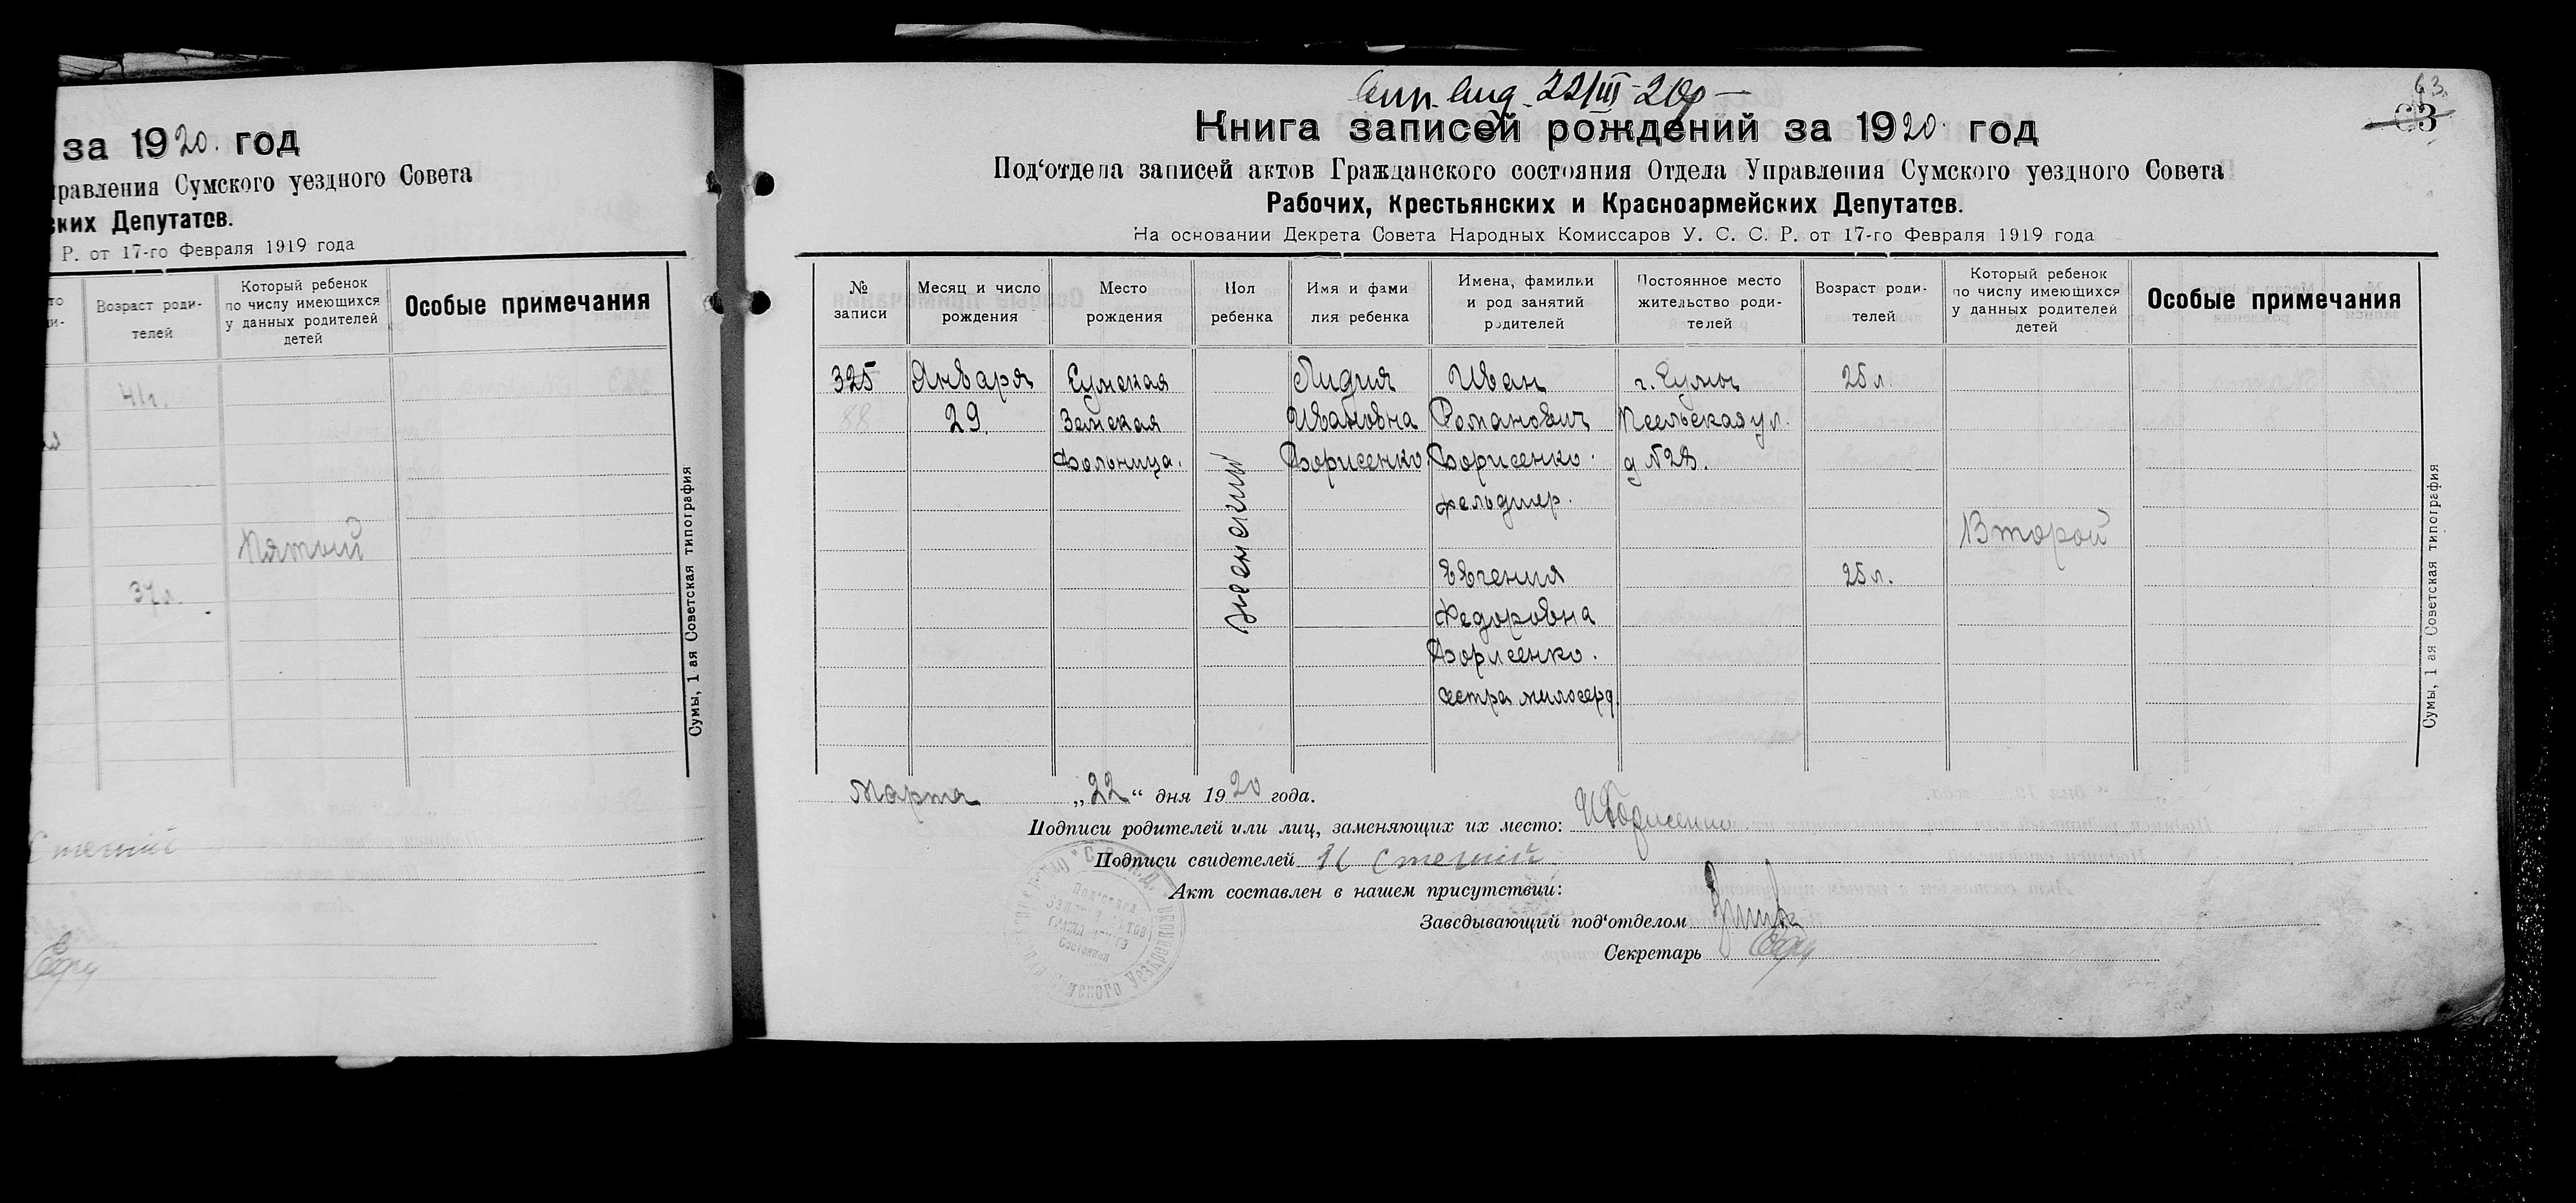 за 1920. год
правления Сумского уездного Совета
ских Депутатов.
Р. от 17-го Февраля 1919 года
Возраст роди-
телей
Который ребенок
по числу имеющихся
у данных родителей
детей
Особые примечания
41г.
Пятый
37л.
Сумы, 1 ая Советская типография
63.
63
22/III-20
Книга записей рождений за 1920. год
Под‘отдела записей актов Гражданского состояния Отдела Управления Сумского уездного Совета
Рабочих, Крестьянских и Красноармейских Депутатов.
На основании Декрета Совета Народных Комиссаров У. С. С. Р. от 17-го Февраля 1919 года
№
записи
Месяц и число
рождения
Место
рождения
Пол
ребенка
Имя и фами
лия ребенка
Имена, фамильи
и род занятий
родителей
Постоянное место
жительство роди-
телей
Возраст роди-
телей
Который ребенок
по числу имеющихся
у данных родителей
детей
Особые примечания
325
88
Января
29.
Сумская
Земская
Больница.
женский
Лидия
Ивановна
Борисенко
Иван
Романович
Борисенко.
фельдшер.
Евгения
Федоровна
Борисенко.
сестра милосерд.
г. Сумы
Псельская ул.
д №28.
25 л.
25 л.
Второй
Сумы, 1 ая Советская типография
Марта „22“ дня 1920 года.
Подписи родителей или лиц, заменяющих их место: ИБорисенко
Подписи свидетелей
Акт составлен в нашем присутствии:
Заведывающий под‘отделом
Секретарь